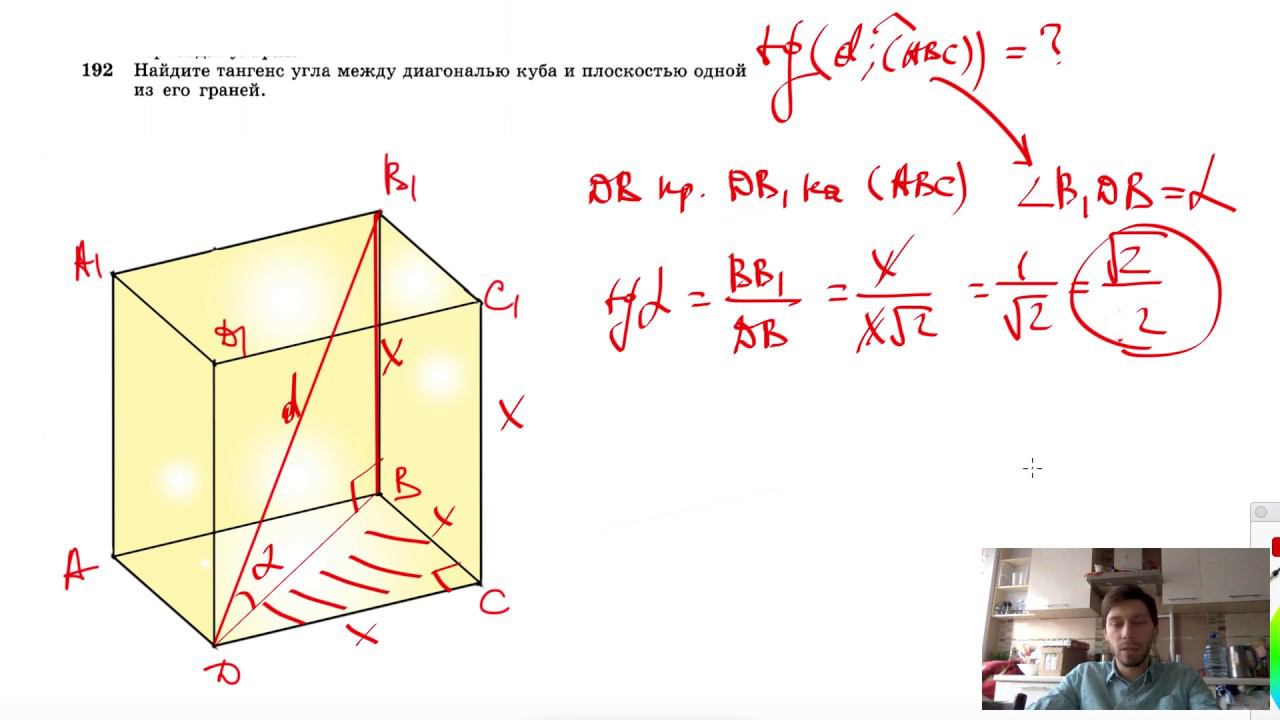 192 Найдите тангенс угла между диагональю куба и плоскостью одной
из его граней.
tg(d;(ABC)) = ?
DB пр. DB₁ на (ABC) ∠B₁DB = α
tgα = BB₁/DB = x/x√2 = 1/√2 = √2/2
B₁
A₁
C₁
D₁
x
d
x
B
x
A
α
C
x
D